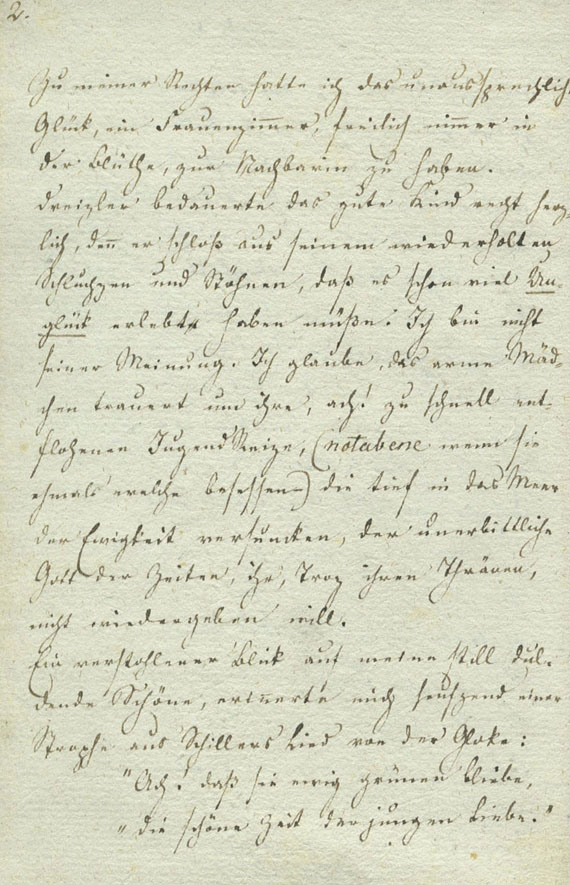 2.
Zu meiner Rechten hatte ich das unaussprechlich
Glück, ein Frauenzimmer, freilich nimmer in
der Blüthe, zur Nachbarin zu haben.
Dreizler bedauerte das gute Kind recht herz-
lich, deñ er schloß aus seinem wiederholten
Schluchzen und Stöhnen, daß es schon viel Un-
glück erlebt haben müße. Ich bin nicht
seiner Meinung. Ich glaube, das arme Mäd-
chen trauert um ihre, ach! zu schnell ent-
flohenen Jugend Reize, (notabene wenn sie
ehmals welche besessen) die tief in das Meer
der Ewigkeit versuncken, der unerbittliche
Gott der Zeiten, ihr, Troz ihren Thränen,
nicht wiedergeben will.
Ein verstohlener Blick auf meine still dul-
dende Schöne, eriñerte mich seufzend einer
Strophe aus Schillers Lied von der Gloke:
"Ach! daß sie ewig grünen bliebe,
"die schöne Zeit der jungen Liebe."